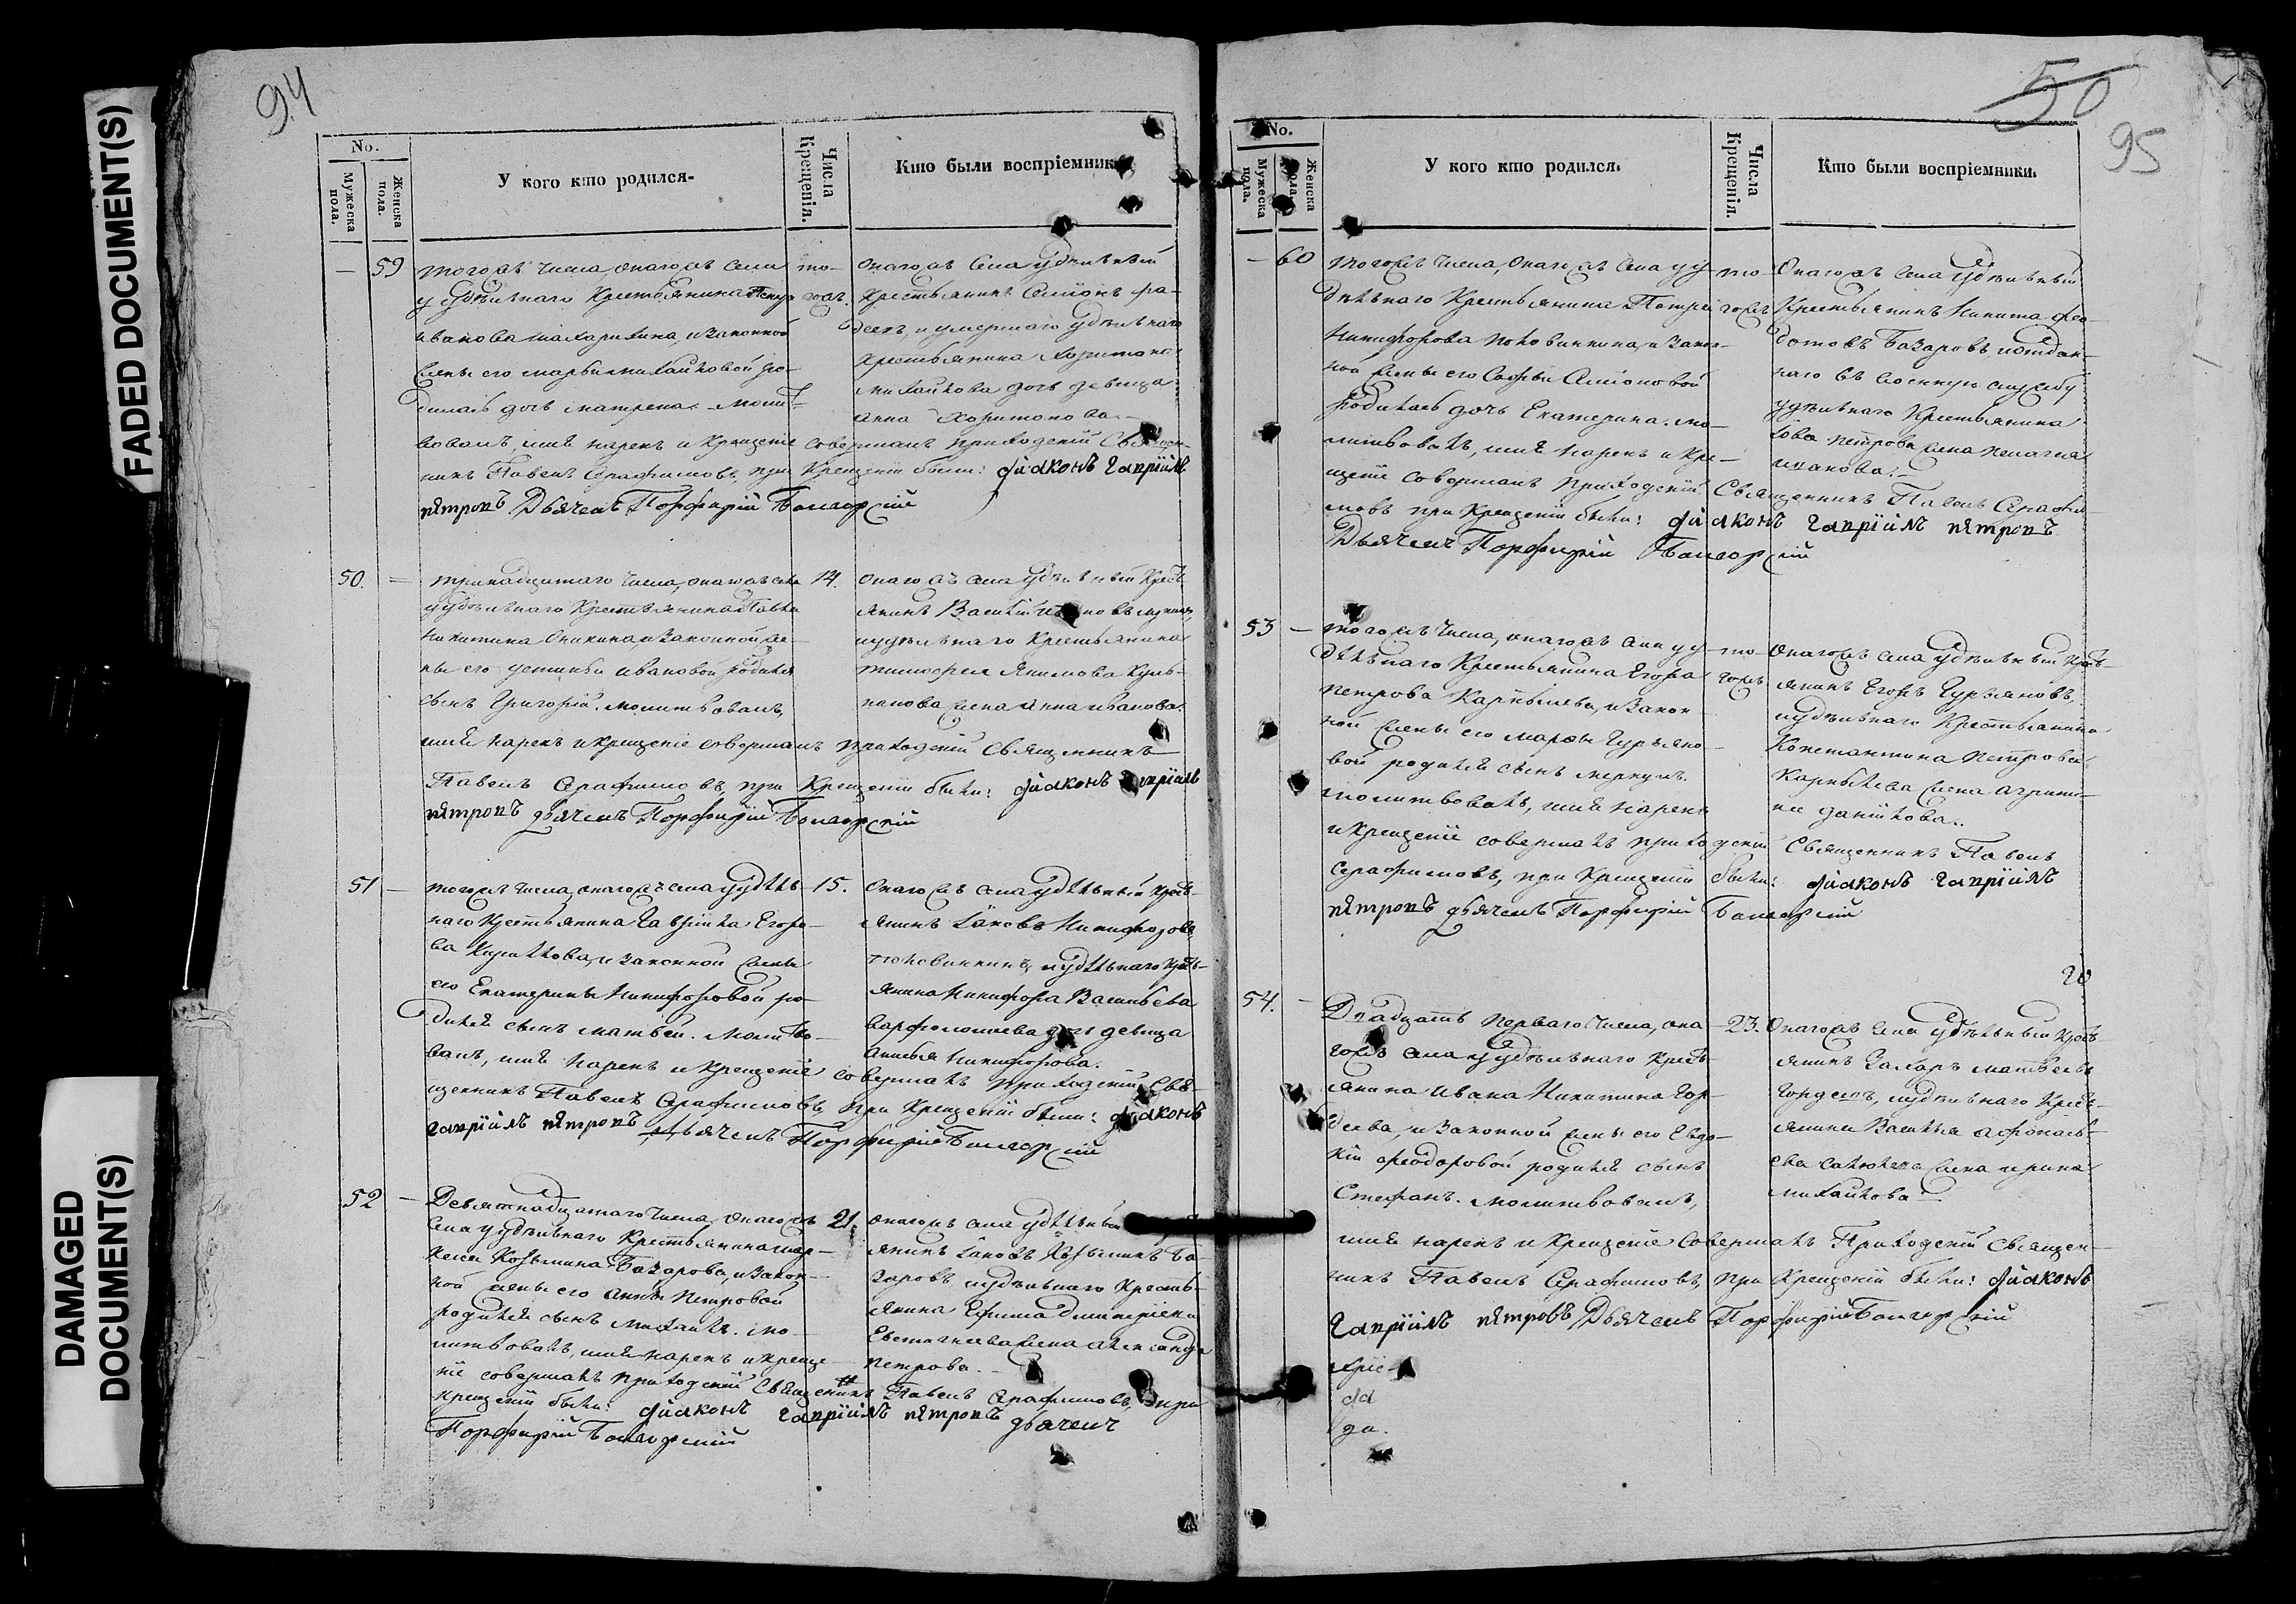 FADED DOCUMENT(S)
DAMAGED
DOCUMENT(S)
94
No.
Мужеска пола.
Женска пола.
У кого кто родился.
Числа Крещенія.
Кто были воспріемник
59
тогожъ числа, онагожъ села
у удѣльнаго Крестьянина
Иванова и законной
жены его Марьи Михайловой ро-
дилась дочь Матрена. Молит-
вовалъ, имя нарекъ и крещеніе совершалъ приходскій Священ-
никъ Павелъ Серафимовъ, при Крещеніи были: діаконъ Гавріилъ
Петровъ Дьячекъ Порфирій
то-
гожъ
онагожъ села удѣльный
Крестьянинъ Симіонъ
и умершаго удѣльнаго
крестьянина Харитона
Михайлова дочь девица
Анна Харитонова.
50.
тринадцатаго числа, онагожъ села
у удѣльнаго Крестьянина Павла
Никитина Оникина, и законной же-
ны его Устиньи Ивановой родился
сынъ Григорій. Молитвовалъ,
имя нарекъ и крещеніе совершалъ приходскій Священникъ
Павелъ Серафимовъ, при Крещеніи были: діаконъ Гавріилъ
Петровъ дьячекъ Порфирій
14.
онагожъ села удѣльный Кресть-
янинъ Василій
и удѣльнаго Крестьянина
Тимофея Якимова
жена Анна Иванова.
51
тогожъ числа онагожъ села у удѣль-
наго Крестьянина Гавріила Егоро-
ва и законной жены
его Екатерины Никифоровой ро-
дился сынъ Матвей. Молитво-
валъ, имя нарекъ и крещеніе совершалъ приходскій Свя-
щенникъ Павелъ Серафимовъ, при Крещеніи были: діаконъ
Гавріилъ Петровъ Дьячекъ Порфирій
15.
Онагожъ села удѣльный крест-
янинъ Іаковъ Никифоровъ
Половинкинъ, и удѣльнаго крест-
янина Никифора Васильева
Варфоломеева дочь девица
Никифорова.
52
Девятнадцатаго числа онагожъ
села у удѣльнаго Крестьянина Мар-
кела Козьмина Базарова, и закон-
ной жены его Анны Петровой
родился сынъ Михаилъ. Мо-
литвовалъ, имя нарекъ и креще-
ніе совершалъ приходскій Священникъ Павелъ Серафимовъ, при
крещеніи были: діаконъ Гавріилъ Петровъ дьячекъ
Порфирій
21.
онагожъ села удѣльный
янинъ Іаковъ Козьминъ Ба-
заровъ и удѣльнаго Кресть-
янина Ефима Димитріева
жена Александра
Петрова.
50
95
No.
Мужеска пола.
Женска пола.
У кого кто родился.
Числа Крещенія.
Кто были воспріемники.
60
тогожъ числа, онагожъ села у у-
дѣльнаго Крестьянина Петра
Никифорова Половинкина, и закон-
ной жены его Софьи Симіоновой
родилась дочь Екатерина. Мо-
литвовалъ, имя нарекъ и кре-
щеніе совершалъ приходскій Священникъ Павелъ Серафи-
мовъ при Крещеніи были: діаконъ Гавріилъ Петровъ
Дьячекъ Порфирій
то-
гожъ
Онагожъ села Удѣльный
Крестьянинъ Никита Фео-
дотовъ Базаровъ и отдан-
наго въ военную службу
удѣльнаго Крестьянина
Іова Петрова жена Пелагея
Иванова.
53
тогожъ числа, онагожъ села у у-
дѣльнаго Крестьянина Егора
Петрова Карнышева, и закон-
ной жены его Марфы Гурьяно-
вой родился сынъ Меркулъ.
молитвовалъ, имя нарекъ
и крещеніе совершалъ приходскій Священникъ Павелъ
Серафимовъ, при Крещеніи были: діаконъ Гавріилъ
Петровъ дьячекъ Порфирій
то-
гожъ
Онагожъ села удѣльный крест-
янинъ Егоръ Гурьяновъ,
и удѣльнаго Крестьянина
Константина Петрова
Карнышева жена
Данилова.
54.
Двадцать перваго числа, она-
гожъ села у удѣльнаго крест-
янина Ивана Никитина Гор-
деева, и законной жены его Евдо-
кіи Феодоровой родился сынъ
Стефанъ. Молитвовалъ,
имя нарекъ и Крещеніе Совершалъ Приходскій Священ-
никъ Павелъ Серафимовъ, при Крещеніи были: діаконъ
Гавріилъ Петровъ Дьячекъ Порфирій
23.
Онагожъ села Удѣльный крест-
янинъ Захаръ Матвеевъ
Гордеевъ, и удѣльнаго Крест-
янина Василья Афонась-
ева жена Ирина
Михайлова